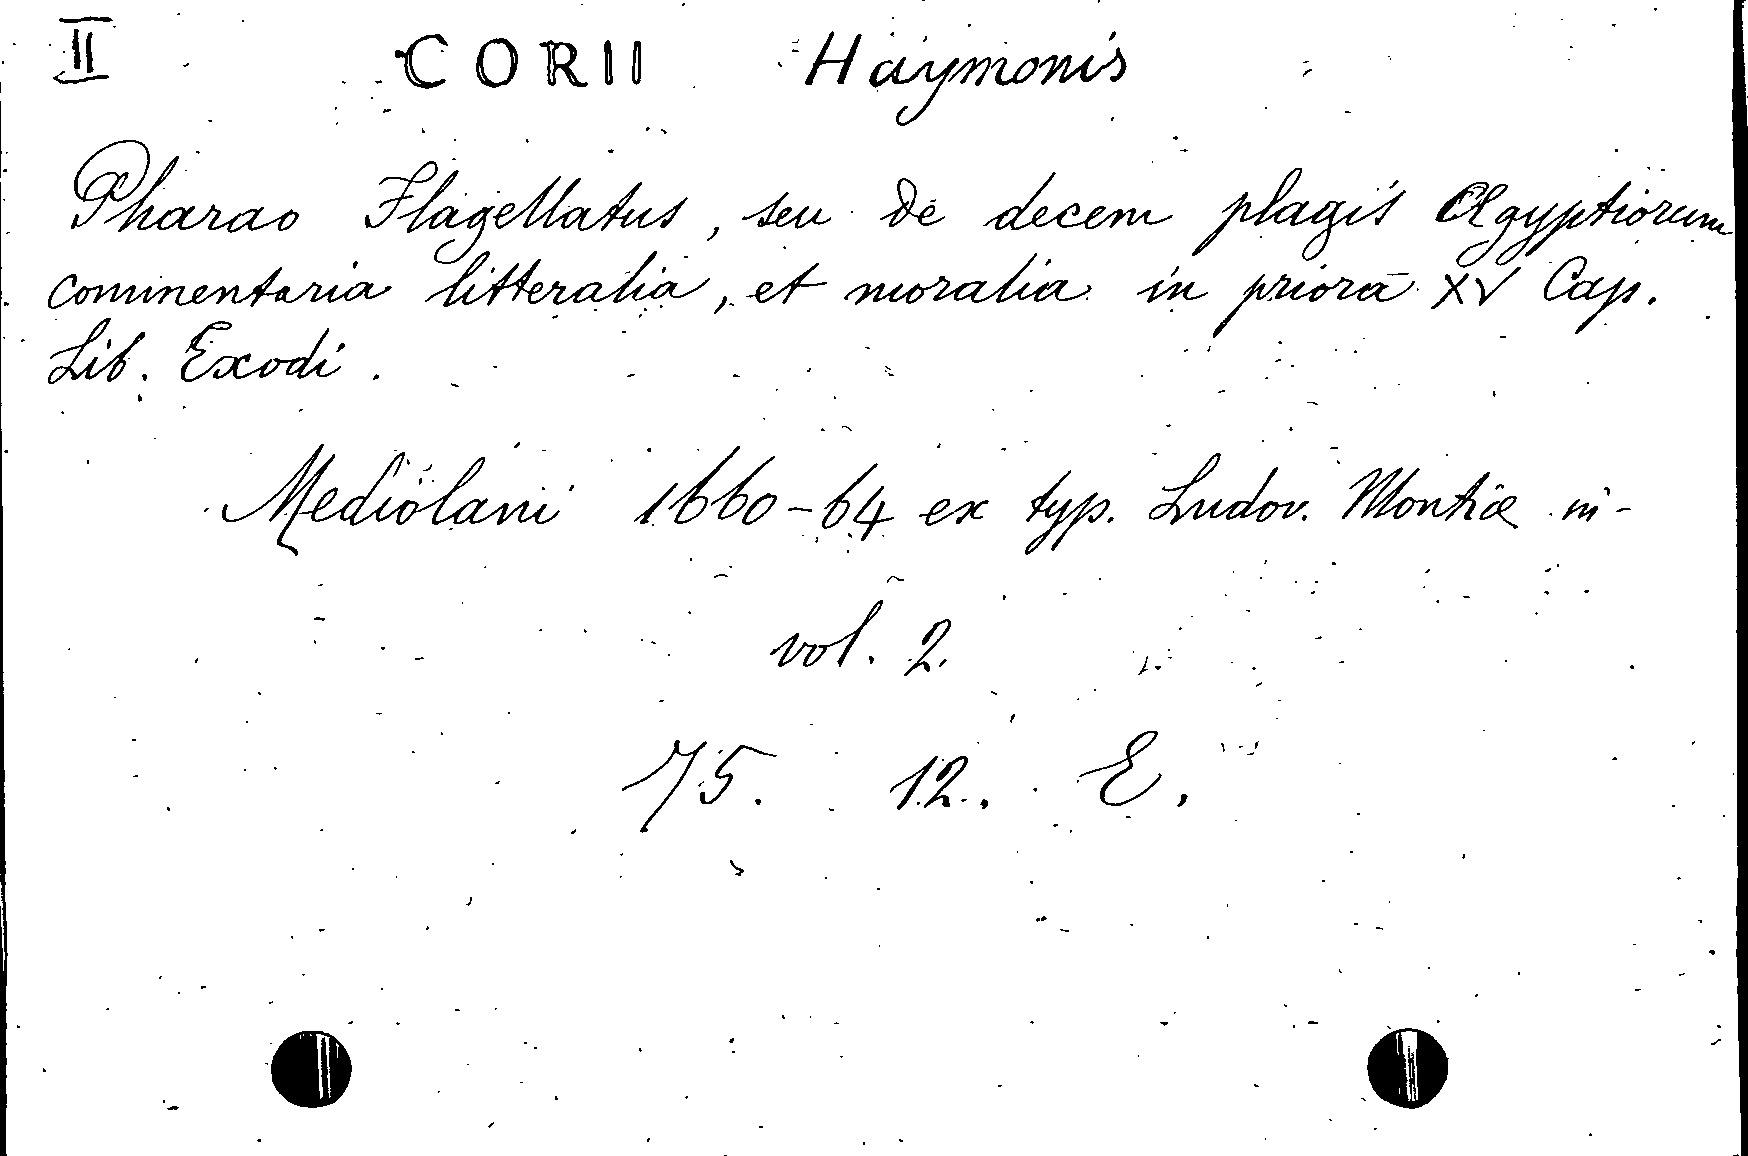 II CORII Haymonis
Pharao Flagellatus, seu de decem plagis Ægyptiorum
commentaria litteralia, et moralia in priora XV Cap.
Lib. Exodi.
Mediolani 1660-64 ex typ. Ludov. Montiæ in-
vol. 2.
75. 12. E.